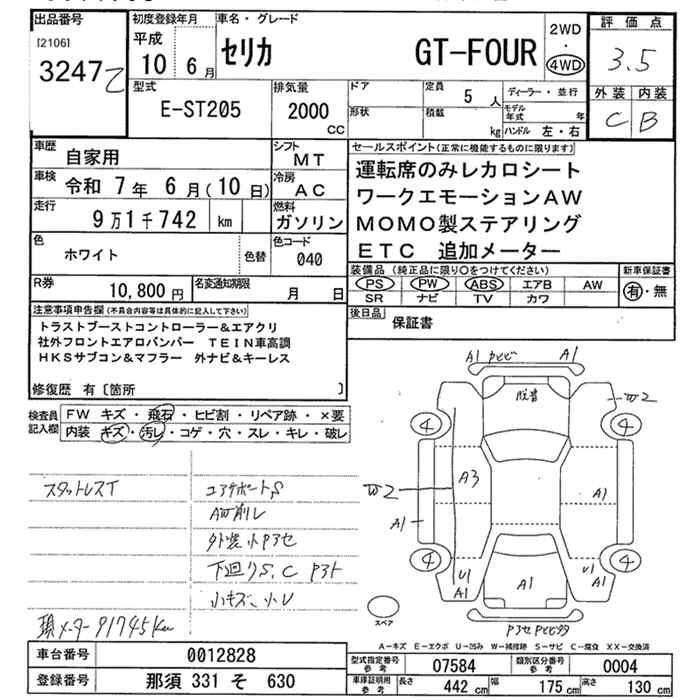 出品番号
[2106]
3247
初度登録年月
平成
10 6月
車名・グレード
セリカ GT-FOUR
2WD
・
4WD
評価点
3.5
外装 内装
C B
型式
E-ST205
排気量
2000
CC
ドア
形状
定員
5人
積載
kg
ディーラー・並行
モデル年式 年
ハンドル 左・右
車歴
自家用
シフト
MT
車検
令和 7年 6月(10日)
冷房
AC
走行
9万1千742 km
燃料
ガソリン
セールスポイント(正常に機能するものに限ります)
運転席のみレカロシート
ワークエモーションAW
MOMO製ステアリング
ETC 追加メーター
色
ホワイト
色替
色コード
040
R券
10,800円
名変通知期限
月 日
装備品(純正品に限り○をつけてください)
PS PW ABS エアB AW
SR ナビ TV カワ
新車保証書
有・無
後日品
保証書
注意事項申告欄(不具合内容等は具体的に記入して下さい)
トラストブーストコントローラー&エアクリ
社外フロントエアロバンパー TEIN車高調
HKSサブコン&マフラー 外ナビ&キーレス
修復歴 有〔箇所 〕
検査員記入欄
FW キズ・飛石・ヒビ割・リペア跡・×要
内装 キズ・汚レ・コゲ・穴・スレ・キレ・破レ
スタットレスT
コアサポートS
A凹削レ
下廻りS、C
小キズ、小U
現メーター91745km
A1
A1
W2
4
4
W2
A3
A1
A1
4
4
U1
A1
A1
U1
A1
スペア
A-キズ E-エクボ U-凹み W-補修跡 S-サビ C-腐食 XX-交換済
車台番号 0012828
登録番号 那須 331 そ 630
型式指定番号 参考 07584
類別区分番号 参考 0004
車庫証明用 参考
長さ 442 cm 幅 175 cm 高さ 130 cm